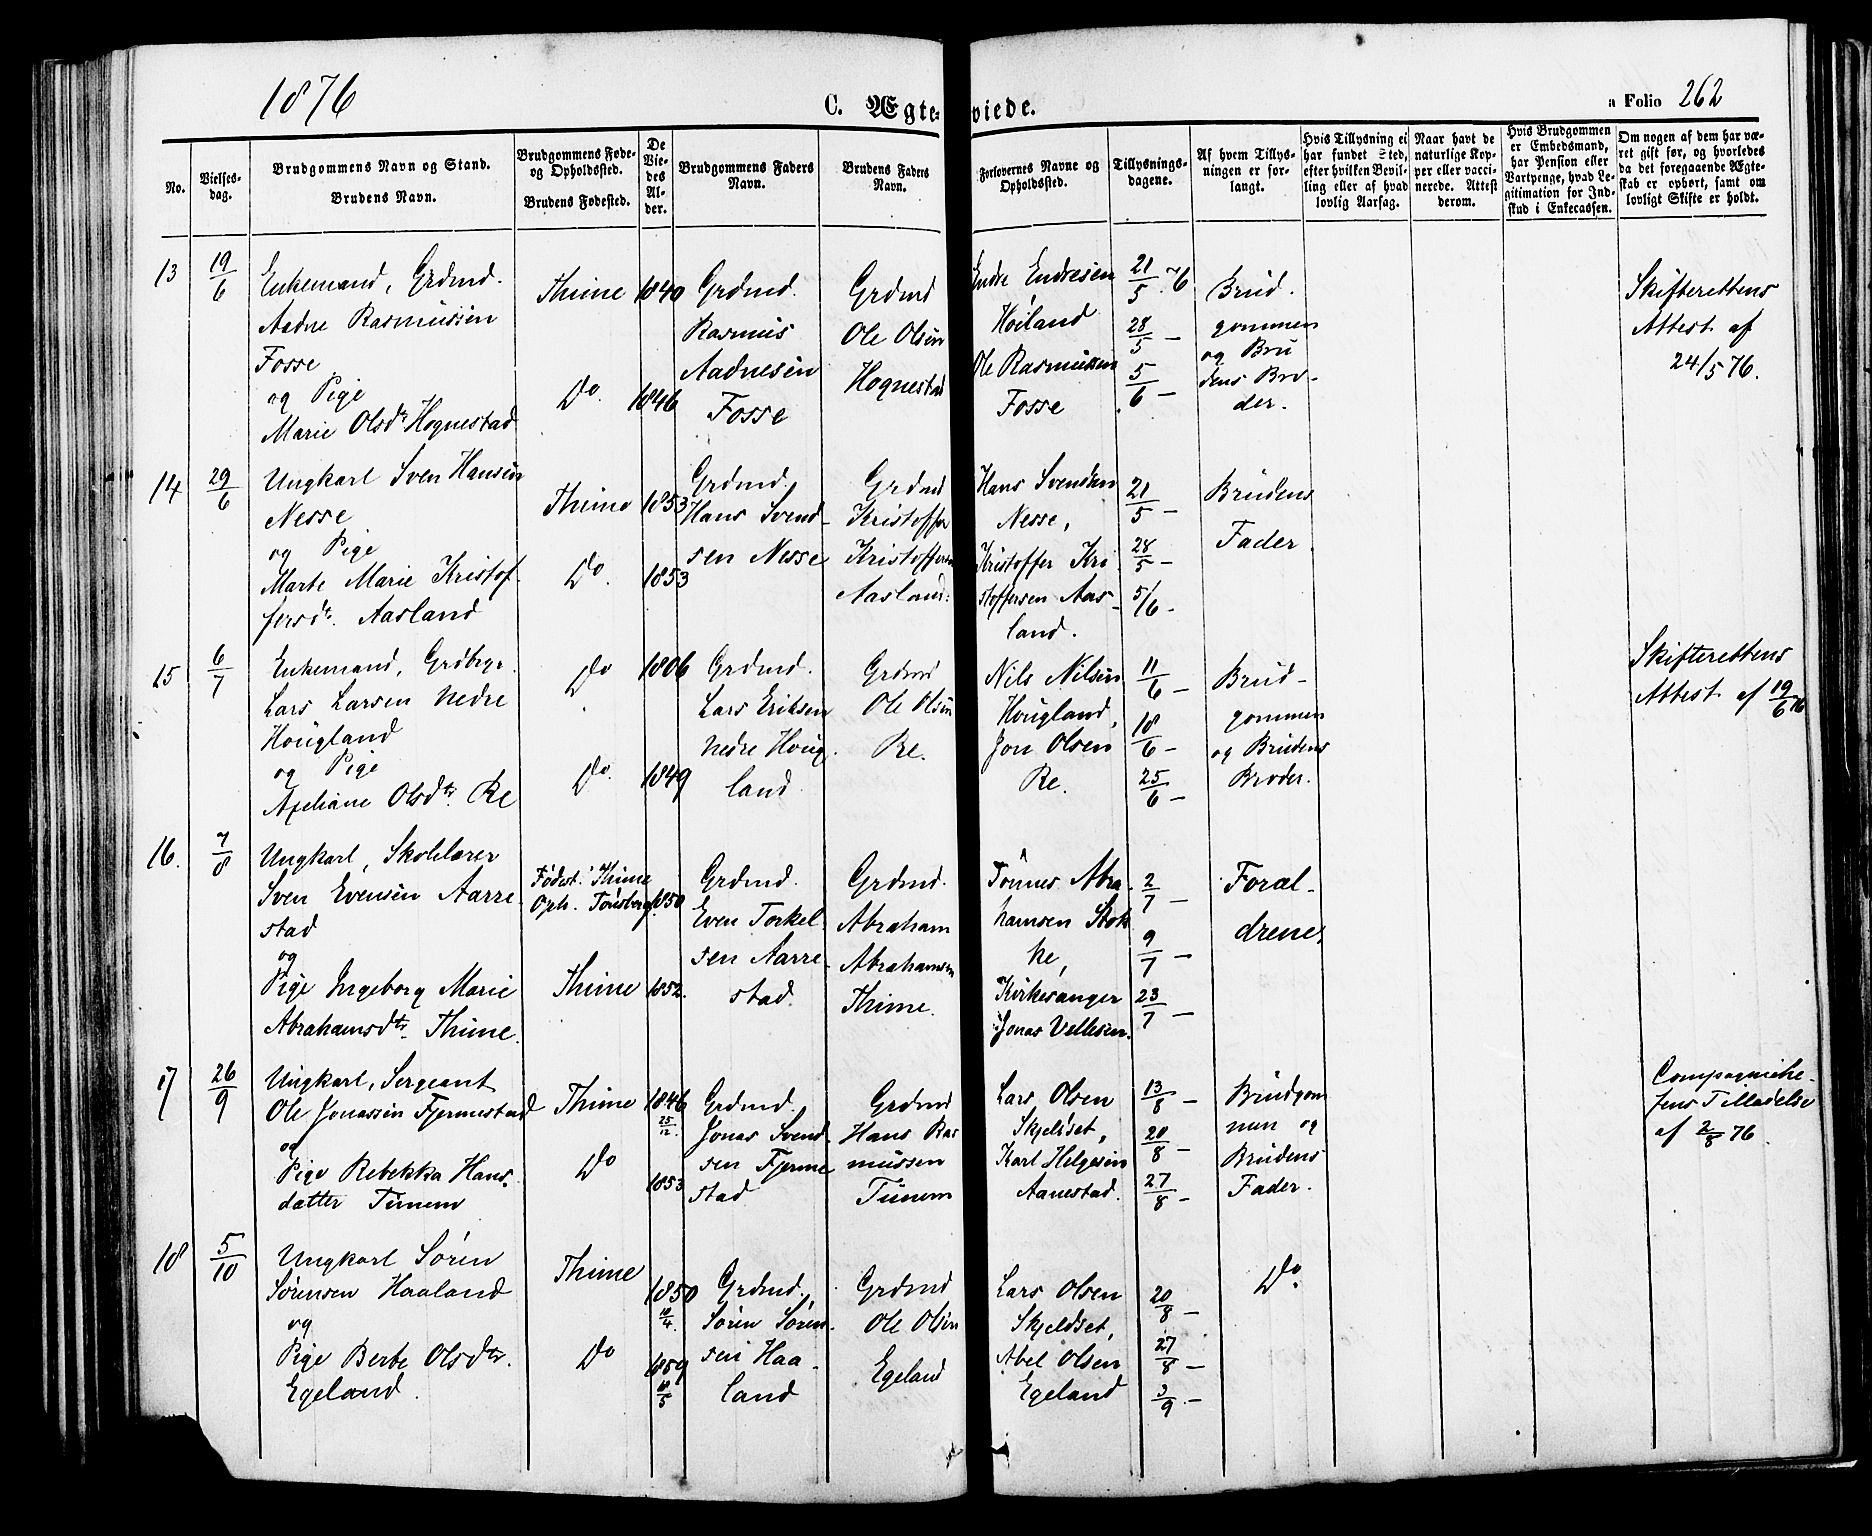 1876
C. Ægteviede.
a Folio 262
No.
Vielses-
dag.
Brudgommens Navn og Stand.
Brudens Navn.
Brudgommens Føde-
og Opholdssted.
Brudens Fødested.
De
Vie-
des
Al-
der.
Brudgommens Faders
Navn.
Brudens Faders
Navn.
Forlovernes Navne og
Opholdssted.
Tillysnings-
dagene.
Af hvem Tillys-
ningen er for-
langt.
Hvis Tillysning ei
har fundet Sted,
efter hvilken Bevil-
ling eller af hvad
lovlig Aarsag.
Naar havt de
naturlige Kop-
per eller vacci-
nerede. Attest
derom.
Hvis Brudgommen
er Embedsmand,
har Pension eller
Vartpenge, hvad Le-
gitimation for Ind-
skud i Enkecassen.
Om nogen af dem har væ-
ret gift før, og hvorledes
da det foregaaende Ægte-
skab er ophørt, samt om
lovligt Skifte er holdt.
13
19/6
Enkemand, Grdmd.
Aadne Rasmussen
Fosse
og Pige
Marie Olsdtr Hognestad
Thime
Do
1840
1846
Grdmd.
Rasmus
Aadnesen
Fosse
Grdmd
Ole Olsen
Hognestad
Endre Endresen
Høiland
Ole Rasmussen
Fosse
21/5 76
28/5 —
5/6 —
Brud-
gommen
og Bru
dens Bro-
der.
Skifterettens
Attest af
24/5 76.
14
29/6
Ungkarl Sven Hansen
Nesse
og Pige
Marte Marie Kristof-
fersdtr. Aasland
Thime
Do.
1853
1853
Grdmd.
Hans Svend-
sen Nesse
Grdmd
Kristoffer
Kristoffersen
Aasland.
Hans Svendsen
Nesse,
Kristoffer Kri
stoffersen Aas-
land.
21/5 —
28/5 —
5/6 —
Brudens
Fader
15
6/7
Enkemand, Grdbrgr.
Lars Larsen nedre
Hougland
og Pige
Axeliane Olsdtr. Re
Do
Do.
1806
1849
Grdmd.
Lars Eriksen
nedre Houg
land
Grdmd
Ole Olsen
Re.
Nils Nilsen
Hougland,
Jon Olsen
Re.
11/6 —
18/6 —
25/6 —
Brud-
gommen
og Brudens
Broder.
Skifterettens
Attest af 19/6 76
16.
7/8
Ungkarl, Skolelærer
Sven Evensen Aarre
stad
og
Pige Ingeborg Marie
Abrahamsdtr. Thime.
Fødest. Thime
Oph. Tønsberg.
Thime
1850
1852.
Grdmd.
Even Torkel-
sen Aarre-
stad.
Grdmd.
Abraham
Abrahamsen
Thime.
Tønnes Abra-
hamsen Stok
ke,
Kirkesanger
Jonas Vellesen.
2/7 —
9/7 —
23/7 —
Foræl-
drene.
17
26/9
Ungkarl, Sergeant
Ole Jonassen Fjermestad
og
Pige Rebekka Hans-
datter Tunem
Thime
Do
1846
25/12.
1853
Grdmd.
Jonas Svend-
sen Fjerme
stad
Grdmd
Hans Ras
mussen
Tunem
Lars Olsen
Skjeldset,
Karl Helgesen
Aanestad.
13/8 —
20/8 —
27/8 —
Brudgom
men og
Brudens
Fader.
Compagnieche-
fens Tilladelse
af 2/8 76.
18
5/10
Ungkarl Søren
Sørensen Haaland
og
Pige Berte Olsdtr.
Egeland.
Thime
Do
1850
10/4.
1859
Grdmd.
Søren Søren-
sen Haa-
land
Grdmd
Ole Olsen
Egeland
Lars Olsen
Skjeldset,
Abel Olsen
Egeland
20/8 —
27/8 —
3/9 —
Do